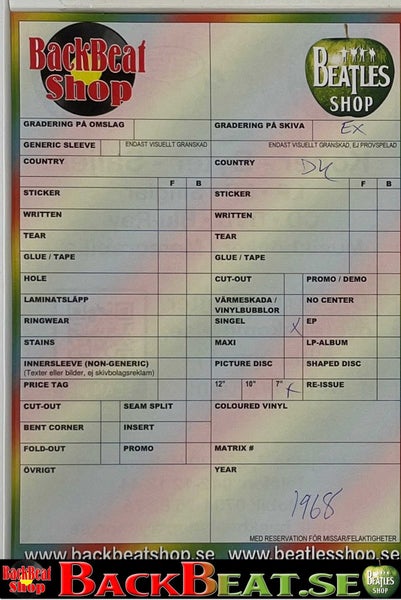 BackBeat
Shop
BEATLES
SHOP
GRADERING PÅ OMSLAG
GRADERING PÅ SKIVA EX
GENERIC SLEEVE ENDAST VISUELLT GRANSKAD
ENDAST VISUELLT GRANSKAD, EJ PROVSPELAD
COUNTRY
COUNTRY DK
F B
F B
STICKER
STICKER
WRITTEN
WRITTEN
TEAR
TEAR
GLUE / TAPE
GLUE / TAPE
HOLE
CUT-OUT PROMO / DEMO
LAMINATSLÄPP
VÄRMESKADA / VINYLBUBBLOR NO CENTER
RINGWEAR
SINGEL X EP
STAINS
MAXI LP-ALBUM
INNERSLEEVE (NON-GENERIC)
(Texter eller bilder, ej skivbolagsreklam)
PICTURE DISC SHAPED DISC
PRICE TAG
12" 10" 7" X RE-ISSUE
CUT-OUT SEAM SPLIT
COLOURED VINYL
BENT CORNER INSERT
FOLD-OUT PROMO
MATRIX #
ÖVRIGT
YEAR
1968
MED RESERVATION FÖR MISSAR/FELAKTIGHETER
www.backbeatshop.se www.beatlesshop.se
BackBeat
Shop
BACKBEAT.SE
BEATLES
SHOP